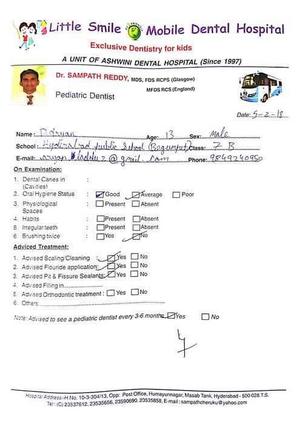 Little Smile Mobile Dental Hospital
Exclusive Dentistry for kids
A UNIT OF ASHWINI DENTAL HOSPITAL (Since 1997)
Dr. SAMPATH REDDY, MDS, FDS RCPS (Glasgow)
MFDS RCS (England)
Pediatric Dentist
Date: 5-2-18
Name: Aryan Age: 13 Sex: Male
School: Hyderabad public School (Begumpet) Class: 7 B
E-mail: @gmail.com Phone:
On Examination:
1. Dental Caries in :
(Cavities)
2. Oral Hygiene Status : Good Average Poor
3. Physiological : Present Absent
Spaces
4. Habits : Present Absent
5. Irregular teeth : Present Absent
6. Brushing twice : Yes No
Adviced Treatment:
1. Advised Scaling/Cleaning : Yes No
2. Advised Flouride application: Yes No
3. Advised Pit & Fissure Sealants Yes No
4. Advised Filling in
5. Advised Orthodontic treatment : Yes No
6. Others
Note: Advised to see a pediatric dentist every 3-6 months Yes No
Hospital Address-H No. 10-3-304/13, Opp: Post Office, Humayunnagar, Masab Tank, Hyderabad - 500 028 T.S.
Tel: (C) 23537612, 23535656, 23590690, 23535858, E-mail : sampathcheruku@yahoo.com